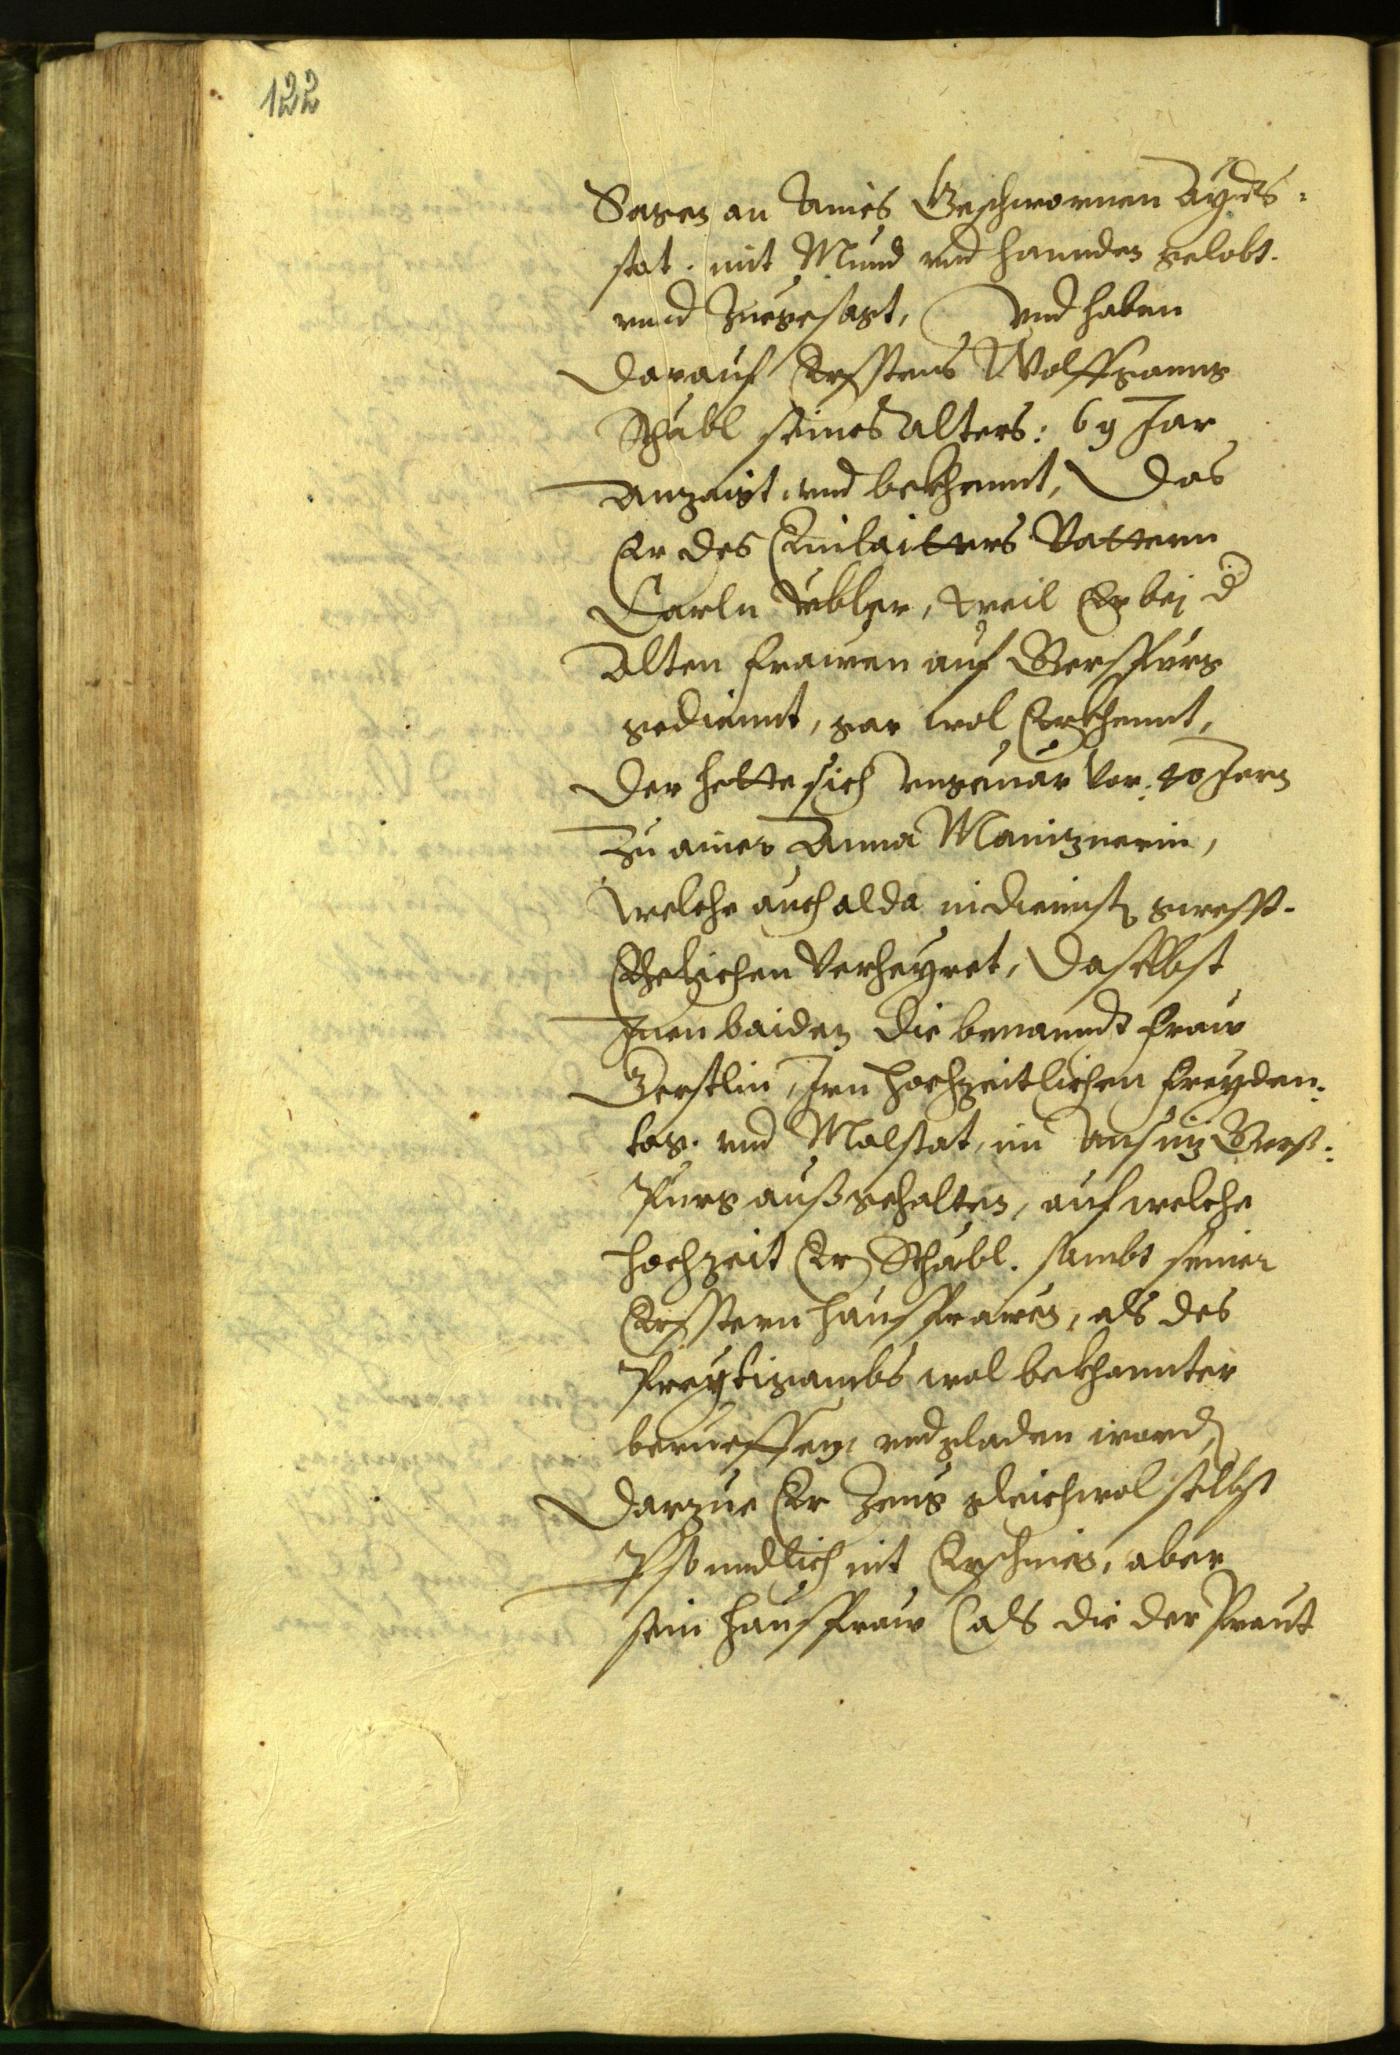 122
Sagen an Aines Geschwornen Aydts:
stat. mit Mund vnd hannden gelobt.
vnnd Zuegesagt, Vnd haben
Darauf Erstens Wolffganng
Schäbl seines Alters: 69 Jar
Anzaigt. vnd bekhennt, Das
Er des Einlaitters Vattern
Carln weil Er bej d
Alten Frawen auf Gerspurg
gediennt, gar wol Erkhennt,
Der hette sich vngeuar Vor. 40 Jarn
Zu ainer Anna
welche auch alda in diennst gwesst.
Ehelichen Verheyret, Daselbst
Jnen baiden die benanndt Fraw
Jrn hochzeitlichen Freyden:
tag. vnd Malstat, im Ansiz Gerß:
Purg außgehalten, auf welche
hochzeit Er Schäbl. sambt seiner
Erstern hausfrawen, als des
Preytigambs wol bekhannter
berueffen, vnd gladen word,
Darzue Er Zeug gleichwol selbst
Persondlich nit Erschinen, aber
sein hausfraw (als die der Praut